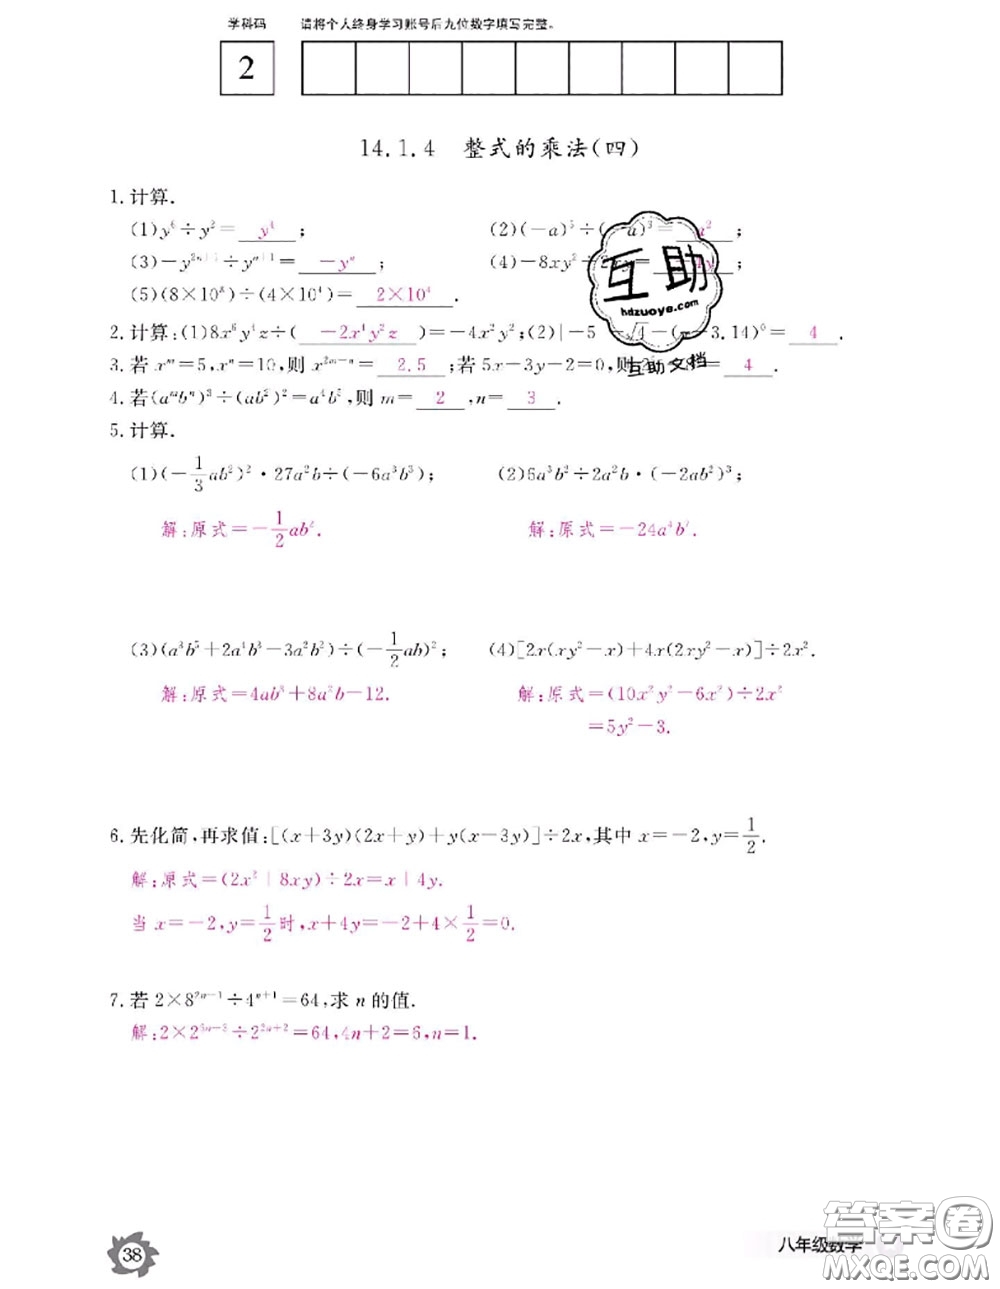 学科码 请将个人终身学习账号后九位数字填写完整。
2
14.1.4 整式的乘法(四)
1.计算.
(1)y⁶÷y²= y⁴ ; (2)(-a)⁵÷(-a)³= a² ;
(3)-y²ⁿ⁺¹÷yⁿ⁺¹= -yⁿ ; (4)-8xy²÷ xy= 4y ;
(5)(8×10⁸)÷(4×10⁴)= 2×10⁴ .
2.计算:(1)8x⁶y⁴z÷( -2x⁴y²z )=-4x²y²;(2)|-5 -√4-(π-3.14)⁰= 4
3.若 xᵐ=5,xⁿ=10,则 x²ᵐ⁻ⁿ= 2.5 ;若 5x-3y-2=0,则 = 4 .
4.若(aᵐbⁿ)³÷(ab²)²=a⁴b⁵,则 m= 2 ,n= 3 .
5.计算.
(1)(-1/3ab²)²·27a²b÷(-6a³b³); (2)6a³b²÷2a²b·(-2ab²)³;
解:原式=-1/2ab². 解:原式=-24a⁴b⁷.
(3)(a³b⁵+2a⁴b³-3a²b²)÷(-1/2ab)²; (4)[2x(xy²-x)+4x(2xy²-x)]÷2x².
解:原式=4ab³+8a²b-12. 解:原式=(10x²y²-6x²)÷2x²
=5y²-3.
6.先化简,再求值:[(x+3y)(2x+y)+y(x-3y)]÷2x,其中 x=-2,y=1/2.
解:原式=(2x²+8xy)÷2x=x+4y.
当 x=-2,y=1/2时,x+4y=-2+4×1/2=0.
7.若 2×8²ⁿ⁻¹÷4ⁿ⁺¹=64,求 n 的值.
解:2×2⁶ⁿ⁻³÷2²ⁿ⁺²=64,4n+2=6,n=1.
互助
hdzuoye.com
互助文档
38
八年级数学
答案圈
MXQE.COM